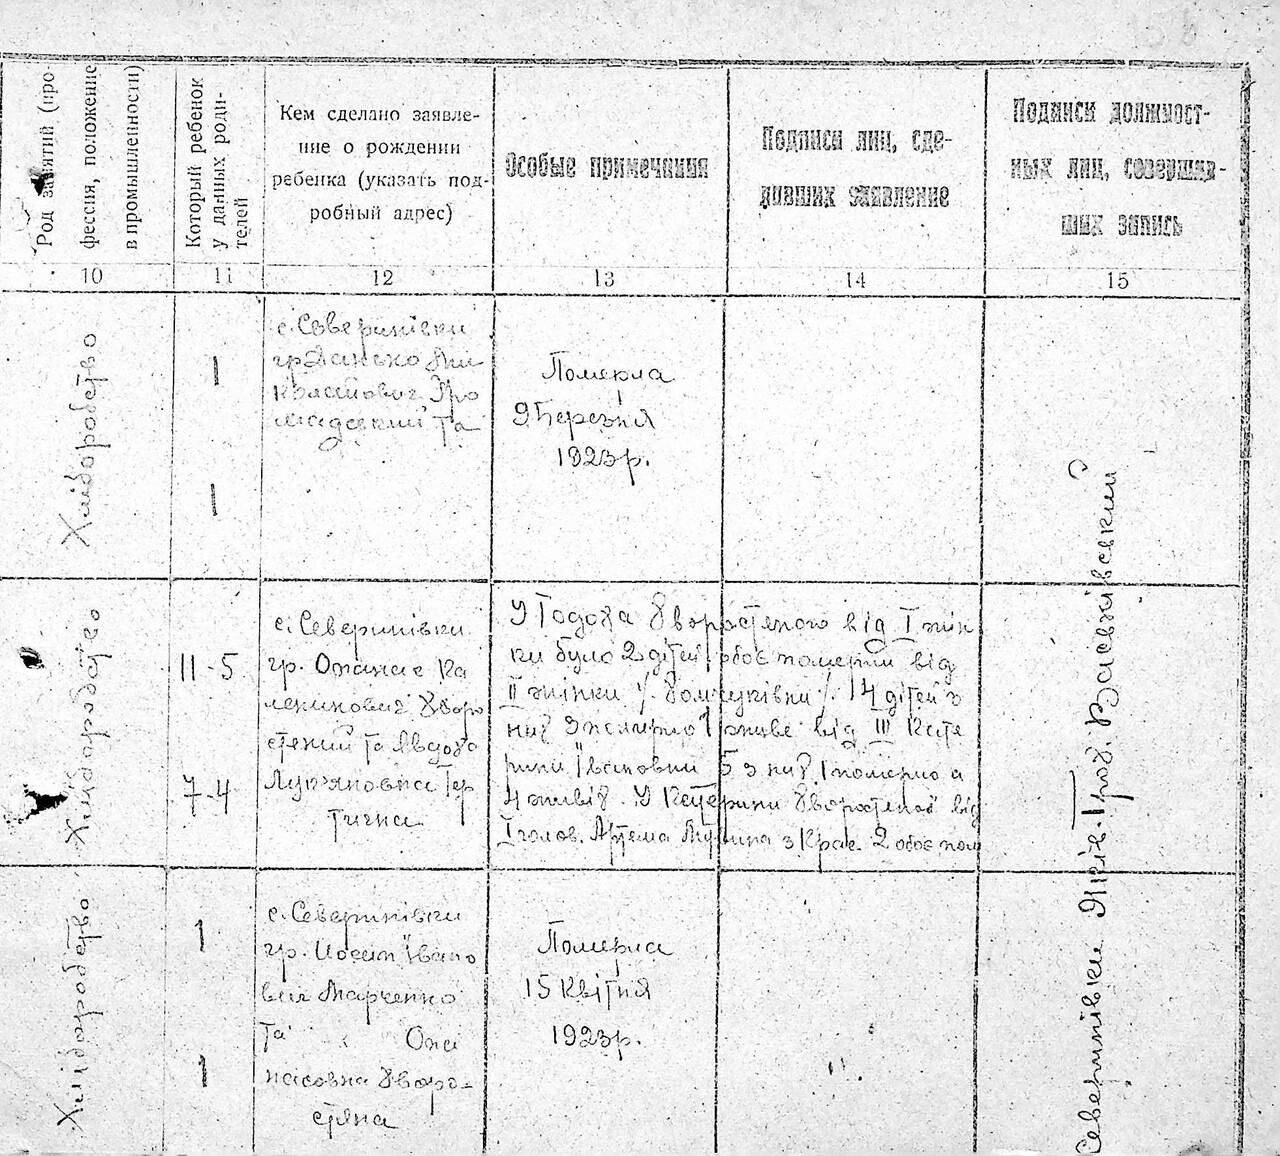 156
Род занятий (про-
фессия, положение
в промышленности)
Который ребенок
у данных роди-
телей
Кем сделано заявле-
ние о рождении
ребенка (указать под-
робный адрес)
Особые примечания
Подписи лиц, сде-
лавших заявление
Подписи должност-
ных лиц, совершив-
ших запись
10
11
12
13
14
15
Хліборобство
1
1
с. Северинівки
гр Данько Ми
колайович Гро
мадський та
Померла
9 Березня
1923 р.
Хліборобство
11-5
7-4
с. Северинівки
гр. Опанас Ка
леникович Хворо
стений та Явдоха
Лук'яновна Тер
тична
У Тодоха Хворостяного від I жін
ки було 2 дітей, обоє померли від
II жінки /. /. 14 дітей з
них 1 живе від III Кате
рини Івановни 5 з них 1 померло а
4 живіх. У Катерини Хворостяної від
I чолов. Артема з 2 обоє пом
Хліборобство
1
1
с. Северинівки
гр. Йосип Івано
вич Марченко
та " Опа
насовна Хворо-
стяна
Померла
15 Квітня
1923 р.
Северинівки